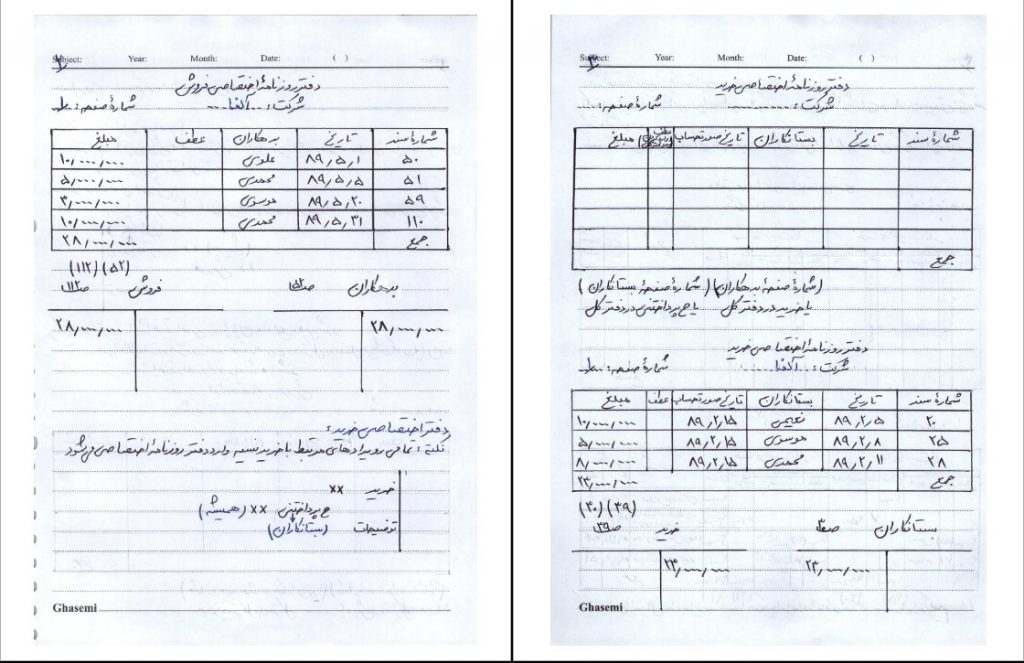 Subject: Year: Month: Date: ( )
دفتر روزنامهٔ اختصاصی فروش
شرکت: ..آلفا.... شمارهٔ صفحه: ..۱..
شمارهٔ سند تاریخ بدهکاران عطف مبلغ
۵۰ ۸۹٫۵٫۱ علوی ۱۰٫۰۰۰٫۰۰۰
۵۱ ۸۹٫۵٫۵ محمدی ۵٫۰۰۰٫۰۰۰
۵۹ ۸۹٫۵٫۲۰ موسوی ۳٫۰۰۰٫۰۰۰
۱۱۰ ۸۹٫۵٫۳۱ محمدی ۱۰٫۰۰۰٫۰۰۰
جمع ۲۸٫۰۰۰٫۰۰۰
(۵۲) (۱۱۲)
بدهکاران ص۵۲ فروش ص۱۱۲
۲۸٫۰۰۰٫۰۰۰ ۲۸٫۰۰۰٫۰۰۰
دفتر اختصاصی خرید:
نکته: تمامی رویدادهای مرتبط با خرید نسیه وارد دفتر روزنامه اختصاصی می‌شود
خرید ××
ح پرداختنی ×× (همیشه)
توضیحات (بستانکاران)
Ghasemi
Subject: Year: Month: Date: ( )
دفتر روزنامهٔ اختصاصی خرید
شرکت: ........... شمارهٔ صفحه: ....
شمارهٔ سند تاریخ بستانکاران تاریخ صورتحساب عطف مبلغ
جمع
(شمارهٔ صفحهٔ بدهکاران) (شمارهٔ صفحهٔ بستانکاران)
یا خرید در دفتر کل یا ح پرداختنی در دفتر کل
دفتر روزنامهٔ اختصاصی خرید
شرکت: ..آلفا.... شمارهٔ صفحه: ..۱..
شمارهٔ سند تاریخ بستانکاران تاریخ صورتحساب عطف مبلغ
۲۰ ۸۹٫۲٫۵ نعیمی ۸۹٫۲٫۱۵ ۱۰٫۰۰۰٫۰۰۰
۲۵ ۸۹٫۲٫۸ موسوی ۸۹٫۲٫۱۵ ۵٫۰۰۰٫۰۰۰
۲۸ ۸۹٫۲٫۱۱ محمدی ۸۹٫۲٫۱۵ ۸٫۰۰۰٫۰۰۰
جمع ۲۳٫۰۰۰٫۰۰۰
(۳۹) (۳۰)
بستانکاران ص۳۰ خرید ص۳۹
۲۳٫۰۰۰٫۰۰۰ ۲۳٫۰۰۰٫۰۰۰
Ghasemi